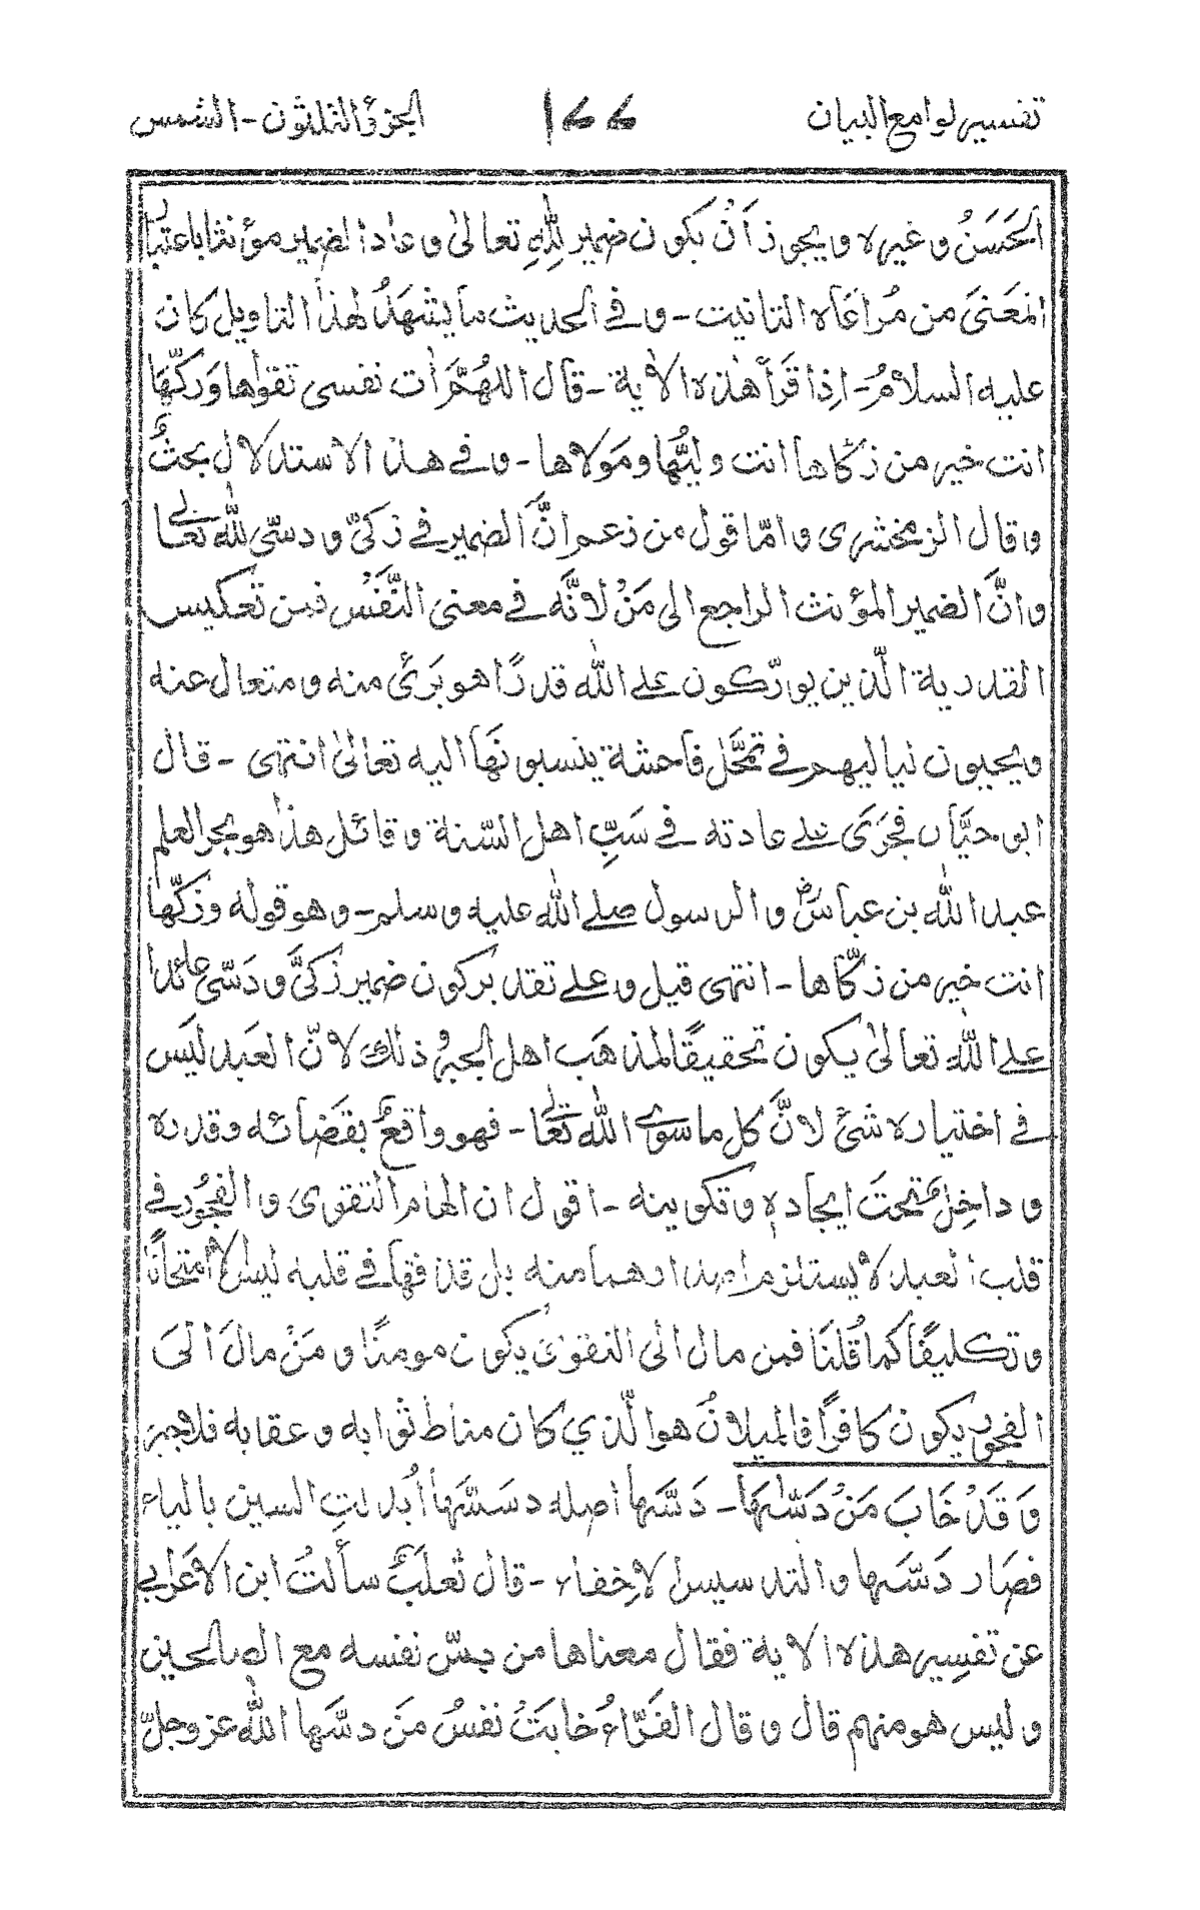 تفسير لوامع البيان ١٤٤ الجزئ الثلثون - الشمس
الحَسَنُ وغيره ويجوز أنْ يكون ضمير لِلّٰهِ تعالىٰ وعاد الضمير مؤنثا باعتبا
المَعنىَ من مُراعَاه التانيت - وفے الحديث مَا يشهَدُ لهٰذا التاويل كان
عليه السلامُ - اِذا قَرَأ هٰذه الاٰية - قال اللهُمَّ اٰت نفسى تقوٰها وَزكّهَا
انت خير من زكّاها انت وليُّها ومَولاها - وفے هذا الاستدلال بحثٌ
وقال الزمخشرى وامّا قول من زعم انَّ الضمير فے زكىّ ودسّىٰ للّٰه تعالے
وانَّ الضمير المؤنث الراجع الى مَنْ لانَّه فے معنى النَّفَسُ فمن تعكيس
القدرية الّذين يورّكون علے اللّٰه قدرًا هو بَرَئ منه ومتعال عنه
ويحيون لياليهم فے تمحَّل فاَحشة ينسبونَها اليه تعالىٰ انتهى - قال
ابو حيّان فجَرَى علے عادته فے سَبِّ اهل السّنة وقائل هذا هو بحر العلم
عبد اللّٰه بن عباسؓ والرسول صلے اللّٰه عليه وسلم - وهو قوله وزكّها
انت خير من زكّاها - انتهى قيل وعلے تقدير كون ضمير زكىَّ ودَسّى عائدا
علے اللّٰه تعالىٰ يكون تحقيقًا لمذهَب اهل الجبر وذلك لانّ العَبد ليَس
فے اختياره شئ لانَّ كل ما سوے اللّٰه تعالے - فهو واقعٌ بقَضَائه وقدره
وداخِل تحتَ ايجاده وتكوينه - اقول ان الهام التقوى والفجُور فے
قلب العبد لا يستلزم اصدارهما منه بل قذفها فے قلبه ليسَ الا امتحَانًا
وتكليفًا كما قُلنَا فمن مال الى التقوىٰ يكون مومنًا ومَنْ مالَ الىَ
الفجور يكون كافرًا فالميلانُ هو الّذي كان مناط ثوابه وعقابه فلا جبر
وَقَدْ خَابَ مَنْ دَسّٰهَا - دَسَّها اصله دسَسَّهَا اُبدلتِ السين بالياء
فصَار دَسَّها والتدسيس لاخِفاء - قال ثعلَبٌ سأَلتُ ابن الاعَرابے
عن تفسِير هذه الاٰية فقال معناها من دسّ نفسه مع الصالحين
وليس هو منهم قال وقال الفَرّاءُ خابَتْ نفسُ مَن دسَّها اللّٰه عزوجلّ